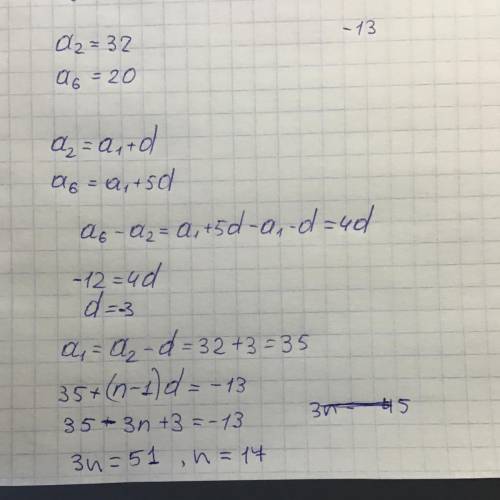 a₂ = 32
-13
a₆ = 20
a₂ = a₁ + d
a₆ = a₁ + 5d
a₆ - a₂ = a₁ + 5d - a₁ - d = 4d
-12 = 4d
d = -3
a₁ = a₂ - d = 32 + 3 = 35
35 + (n-1)d = -13
35 - 3n + 3 = -13
3n = 51 , n = 17